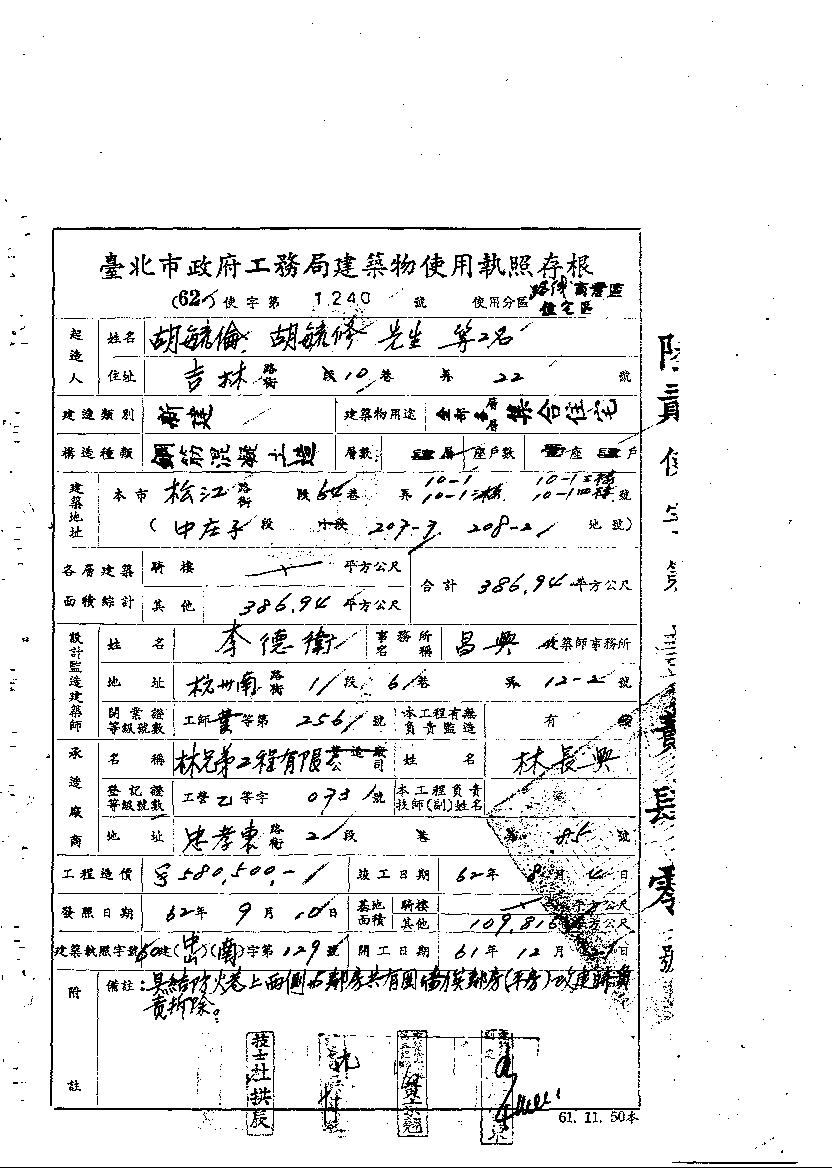 臺北市政府工務局建築物使用執照存根
(62) 使字第 1240 號 使用分區 路線商業區
住宅區
起造人 姓名 胡毓倫 胡毓修 先生 等2名
住址 吉林 路街 段 10 巷 弄 22 號
建造類別 新建 建築物用途 全部 層層 集合住宅
構造種類 鋼筋混凝土造 層數 肆層 座戶數 壹座 肆戶
建築地址 本市 松江 路街 段 64 巷 弄 10-1 10-1二樓 10-1三樓 10-1四樓 號
( 中庄子 段 小段 207-7 208-2 地號 )
各層建築面積綜計 騎樓 平方公尺 合計 386.94 平方公尺
其他 386.94 平方公尺
設計監造建築師 姓名 李德衛 事務所名稱 昌興 建築師事務所
地址 杭州南 路街 1 段 6 巷 弄 12-2 號
開業證等級號數 工師 等第 256 號 本工程有無負責監造 有
承造廠商 名稱 林兄弟工程有限公司 姓名 林長興
登記證等級號數 工營乙等字 0731 號 本工程負責技師(副)姓名
地址 忠孝東 路街 2 段 巷 弄 85 號
工程造價 580,500.- 竣工日期 62年 8月 4日
發照日期 62年 9月 10日 基地面積 騎樓 平方公尺
其他 109.816 平方公尺
建築執照字號 60建(中山)(南)字第 129 號 開工日期 61年 12月 日
附註 備註:具結防火巷上兩側与鄰房共有圍牆俟鄰房(平房)改建時負
責拆除。
技士杜拱辰
61. 11. 50本
陸貳使字第壹貳肆零號